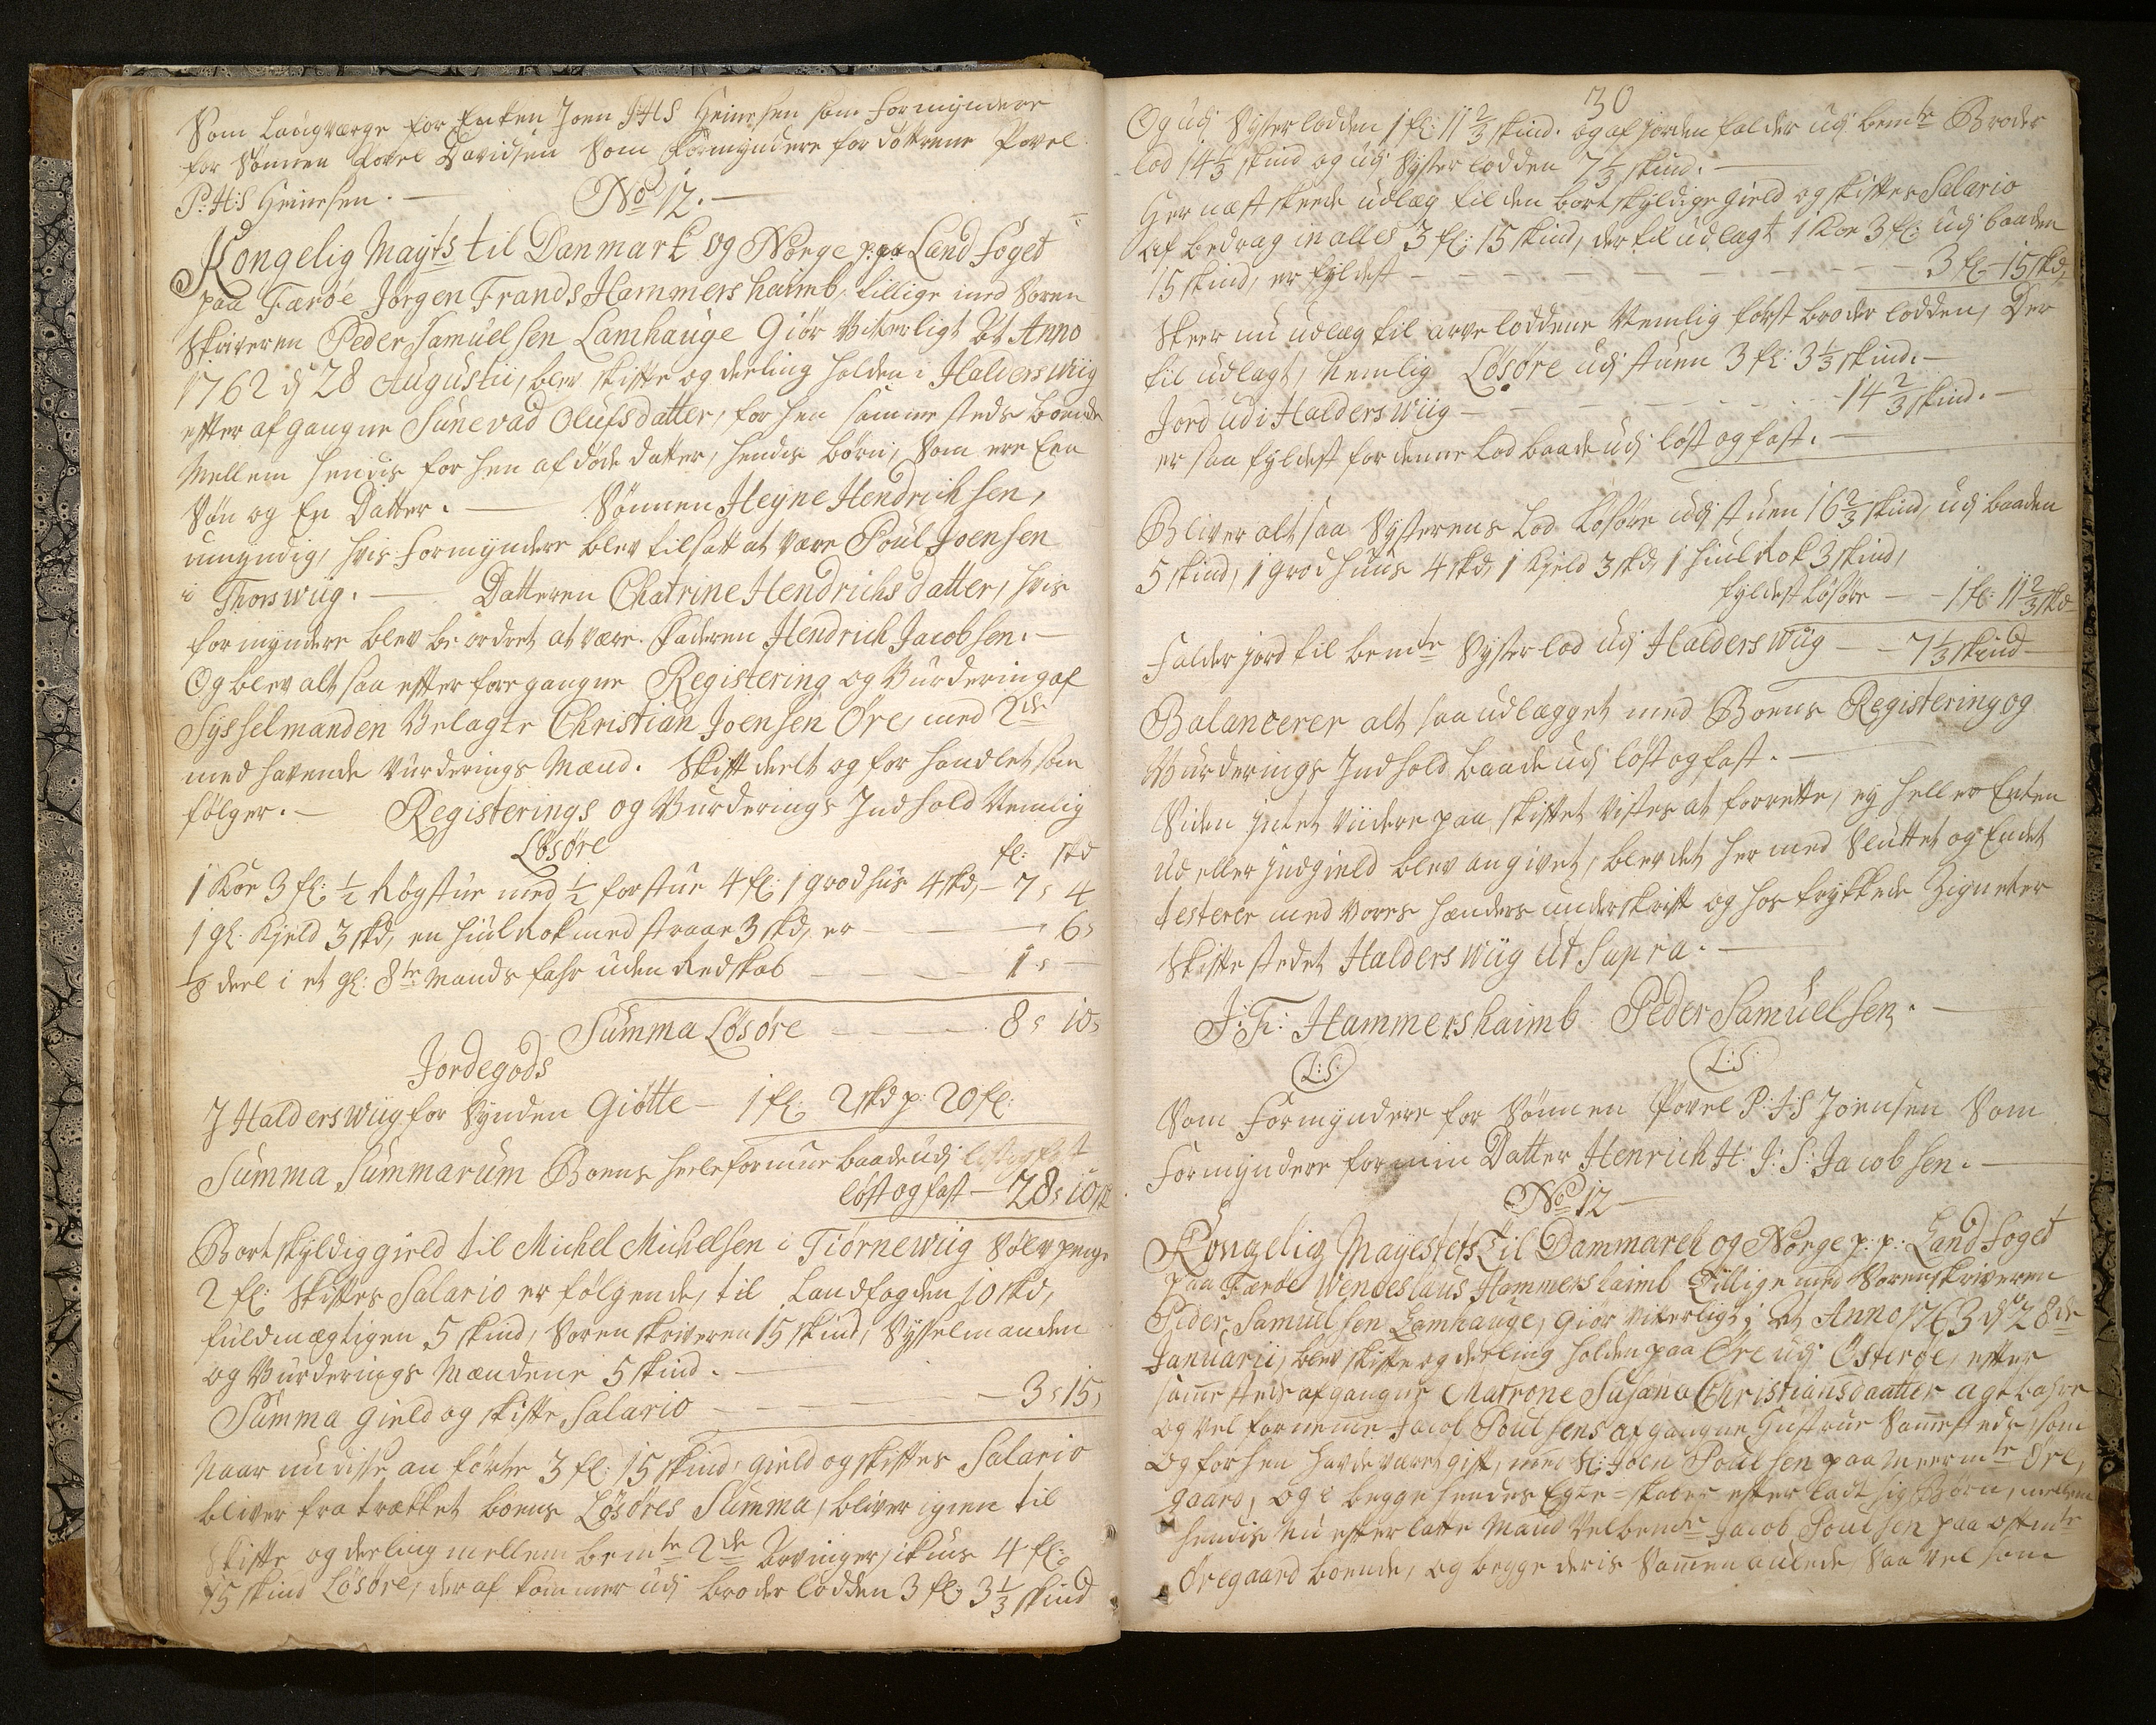 Som Laugværge for Enken Joen J:H:S Heinesen som Formyndere
for Sønnen Povel Davidsen Som Formyndere for døttrene Povel
P:H:S Heinesen. —
No 12. —
Kongelig Mayts til Danmark og Norge p: Land Foget
paa Færøe Jørgen Frands Hammershaimb, tillige med Soren
Skriveren Peder Samuelsen Lamhauge Giør Vitterligt At Anno
1762 d 28 Augustii, blev skifte og deeling holden i Halderswiig
efter afgangne Sunevad Olufsdatter, forhen sammesteds boende
Mellem hendis forhen afdøde datter, hendes børn, Som ere Een
Søn og En Datter. — Sønnen Heyne Hendrichsen,
umyndig, hvis Formyndere blev tilsatt at være Poul Joensen
i Thorswiig. — Datteren Chatrine Hendrichsdatter, hvis
formyndere blev be ordret at være Faderen Hendrich Jacobsen. —
Og blev altsaa efter foregangne Registering og Vurdering af
Sysselmanden Velagte Christian Joensen Øre, med 2de
medhavende Vurderings Mænd. Skift deelt og forhandlet som
følger. — Registerings og Vurderings Indhold Nemlig
Løsøre
fl: skd
1 Koe 3 fl: ½ Røgstue med ½ forstue 4 fl: 1 grodhus 4 skd, — 7, 4
1 gl: Kjeld 3 skd, en hiulRok med straae 3 skd, er — 6,
1/8 deel i et gl: 8te Mands fahr uden Redskab — 1, —
Summa Løsøre — 8, 10,
Jordegods
I Halderswiig for Synden Giøtte — 1 fl: 2 skd p: 20 fl:
Summa Summarum Boens heele formue baade udj løst og fast
løst og fast — 28, 10 sk
Bortskyldig gield til Michel Michelsen i Tiørnewiig Sølv penge
2 fl: Skiftes Salario er følgende, til Landfogden 10 skd,
fuldmægtigen 5 skind, Sorenskriveren 15 skind, Sysselmanden
og Vurderings Mændene 5 skind. —
Summa gield og skifte Salario — 3, 15,
Naar nu disse anførte 3 fl: 15 skind, gield og skiftes Salario
bliver fratrækket boens Løsøres Summa, bliver igien til
Skifte og deeling mellem bemte 2de Arvinger, ikuns 4 fl:
15 skind Løsøre, deraf kommer udj broderlodden 3 fl: 3⅓ skind
30
Og udj Systerlodden 1 fl: 11⅔ skind. og af jorden falder udj bemte Broder
lod 14⅔ skind og udj Systerlodden 7⅓ skind. —
Hernæst skeede udlæg til den bortskyldige gield og skiftes Salario
Afbedrag in alles 3 fl: 15 skind, dertil udlagt 1 Koe 3 fl: udj baaden
15 skind, er fyldest — 3 fl — 15 skd,
Skeer nu udlæg til arve loddene Nemlig først broderlodden, Der
til udlagt, Nemlig Løsøre udj stuen 3 fl: 3⅓ skind. —
Jord udi Halderswiig — 14⅔ skind. —
er saa fyldest for denne Lod baade udj løst og fast. —
Bliver altsaa Systerens Lod Løsøre udj stuen 16⅔ skind, udj baaden
5 skind, 1 grodhuus 4 skd, 1 Kjeld 3 skd, 1 hiulRok 3 skind,
fyldest Løsøre — 1 fl: 11⅔ skd
Falder jord til bemte Systerlod udj Halderswiig — 7⅓ skind —
Balancerer altsaa udlægget med Boens Registering og
Vurderings Indhold baade udj løst og fast. —
Siden intet viidere paa skiftet Vistes at forrette, ey heller Enten
Ud eller Indgield blev angivet, blev det hermed Sluttet og Endet
testerer med Vores hænders underskrift og hos trykkede Zigneter
Skiftestedet Halderswiig Ut Supra. —
J: F: Hammershaimb Peder Samuelsen. —
L:S. L:S.
Som Formyndere for Sønnen Povel P: J: S Joensen Som
Formyndere for min Datter Henrich H: J: S: Jacobsen. —
No 12 —
Kongelig Mayestets Til Dannmarck og Norge p: p: Land Foget
paa Færöe Wenceslaus Hammershaimb Tillige med Sorenskriveren
Peder Samuelsen Lamhauge, giør vitterligt; At Anno 1763 d 28de
Januarii, blev skifte og deeling holden paa Øre udj Österöe, efter
sammesteds afgangne Matrone Susana Christiansdaatter agtbahre
og Velfornemme Jacob Poulsens afgangne Hustrue Sammesteds, som
Og forhen havde været gift, med Sl: Joen Poulsen paa meermte Øre,
gaard, og i begge hendes Egte-skaber efterladt sig Børn, mellem
hendis Nu efterlatte Mand Velbemte Jacob Poulsen paa oftmte
Øregaard boende, og begge deris Sammenaulede, Saavel som